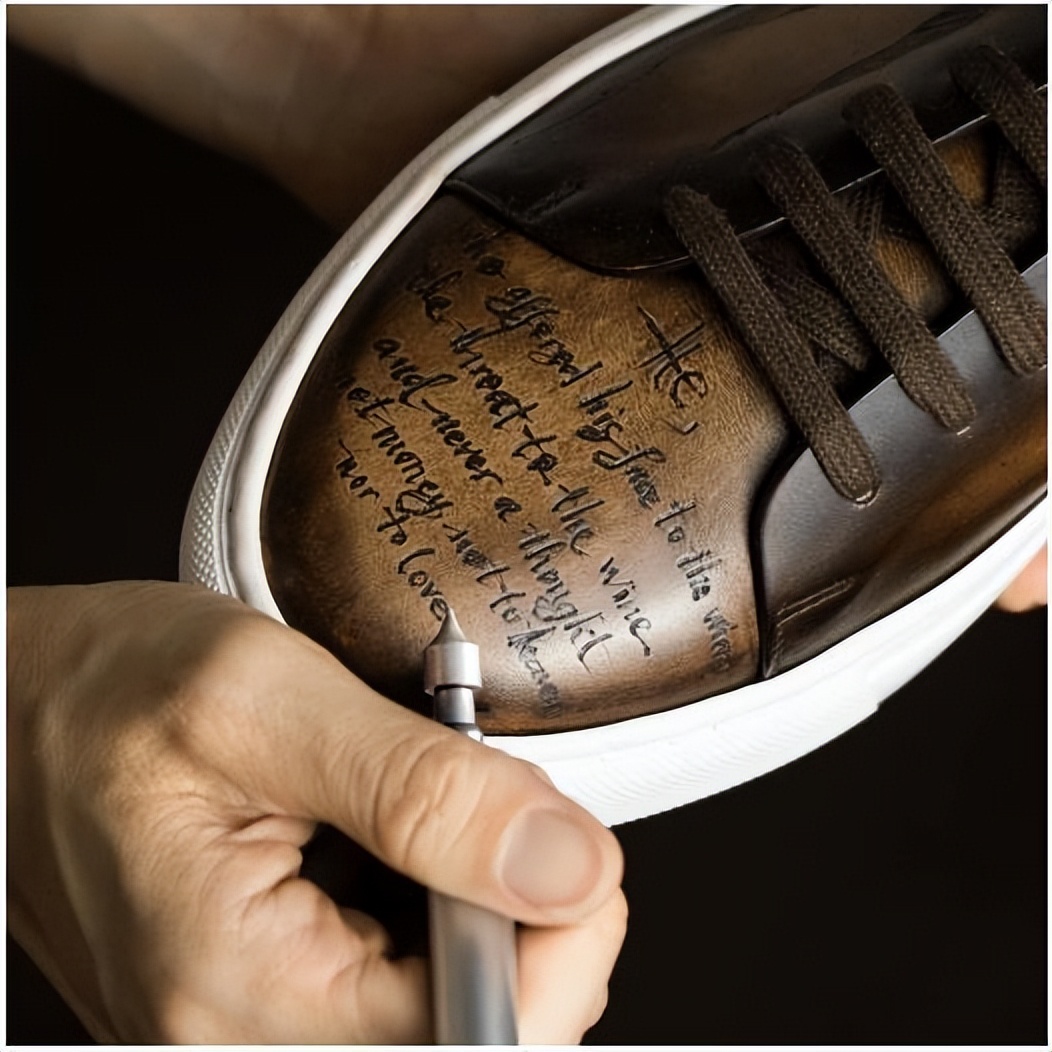 He,
who offered his face to the wind
the throat to the wine
and never a thought
not money not to
nor to love